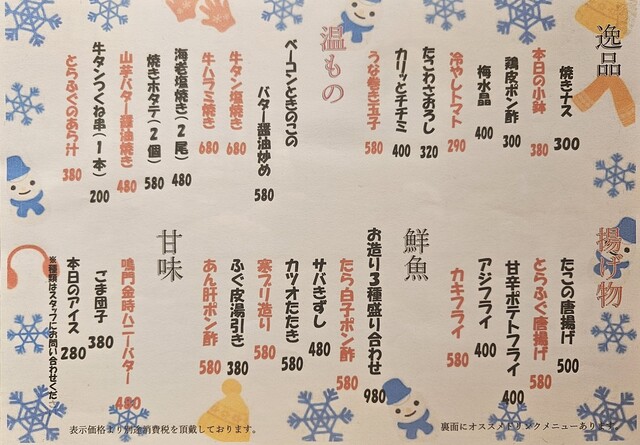 逸品
焼きナス 300
本日の小鉢 380
鶏皮ポン酢 300
梅水晶 400
冷やしトマト 290
たこわさおろし 320
カリッとチヂミ 400
うな巻き玉子 580
温もの
ベーコンときのこの
バター醤油炒め 580
牛タン塩焼き 680
牛ハラミ焼き 680
海老塩焼き(2尾) 480
焼きホタテ(2個) 580
山芋バター醤油焼き 480
牛タンつくね串(1本) 200
とらふぐのあら汁 380
揚げ物
たこの唐揚げ 500
とらふぐ唐揚げ 580
甘辛ポテトフライ 400
アジフライ 400
カキフライ 580
鮮魚
お造り3種盛り合わせ 980
たら白子ポン酢 580
サバきずし 480
カツオたたき 580
寒ブリ造り 580
ふぐ皮湯引き 380
あん肝ポン酢 580
甘味
鳴門金時ハニーバター 480
ごま団子 380
本日のアイス 280
※種類はスタッフにお問い合わせくだ
表示価格より別途消費税を頂戴しております。
裏面にオススメドリンクメニューあります